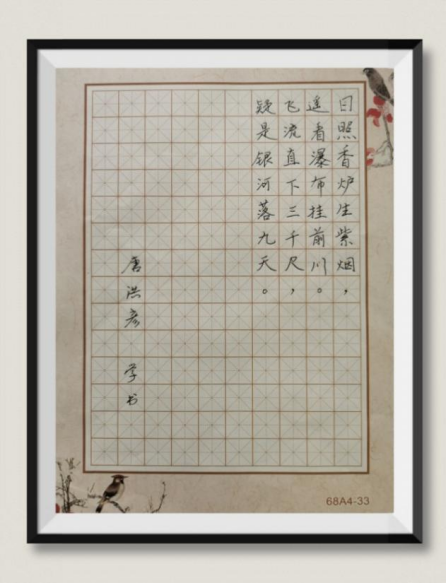 日照香炉生紫烟，
遥看瀑布挂前川。
飞流直下三千尺，
疑是银河落九天。
唐洪彦 学书
68A4-33